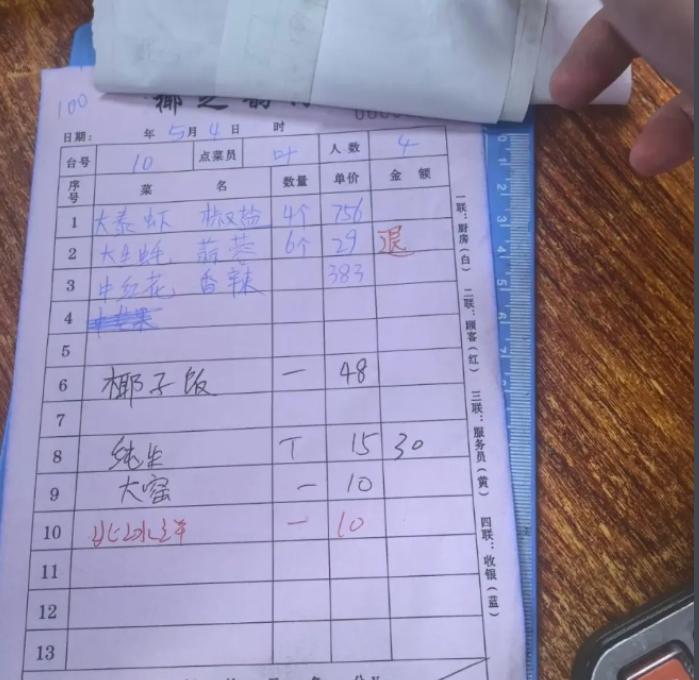 100
日期: 年 5月 4日 时
台号 10 点菜员 叶 人数 4
序号 菜名 数量 单价 金额
1 大泰虾 椒盐 4个 756
2 大生蚝 蒜蓉 6个 29 退
3 中红花 香辣 383
4
5
6 椰子饭 一 48
7
8 纯生 T 15 30
9 大窑 一 10
10 北冰洋 一 10
11
12
13
一联:厨房(白) 二联:顾客(红) 三联:服务员(黄) 四联:收银(蓝)
0 1 2 3 4 5 6 7